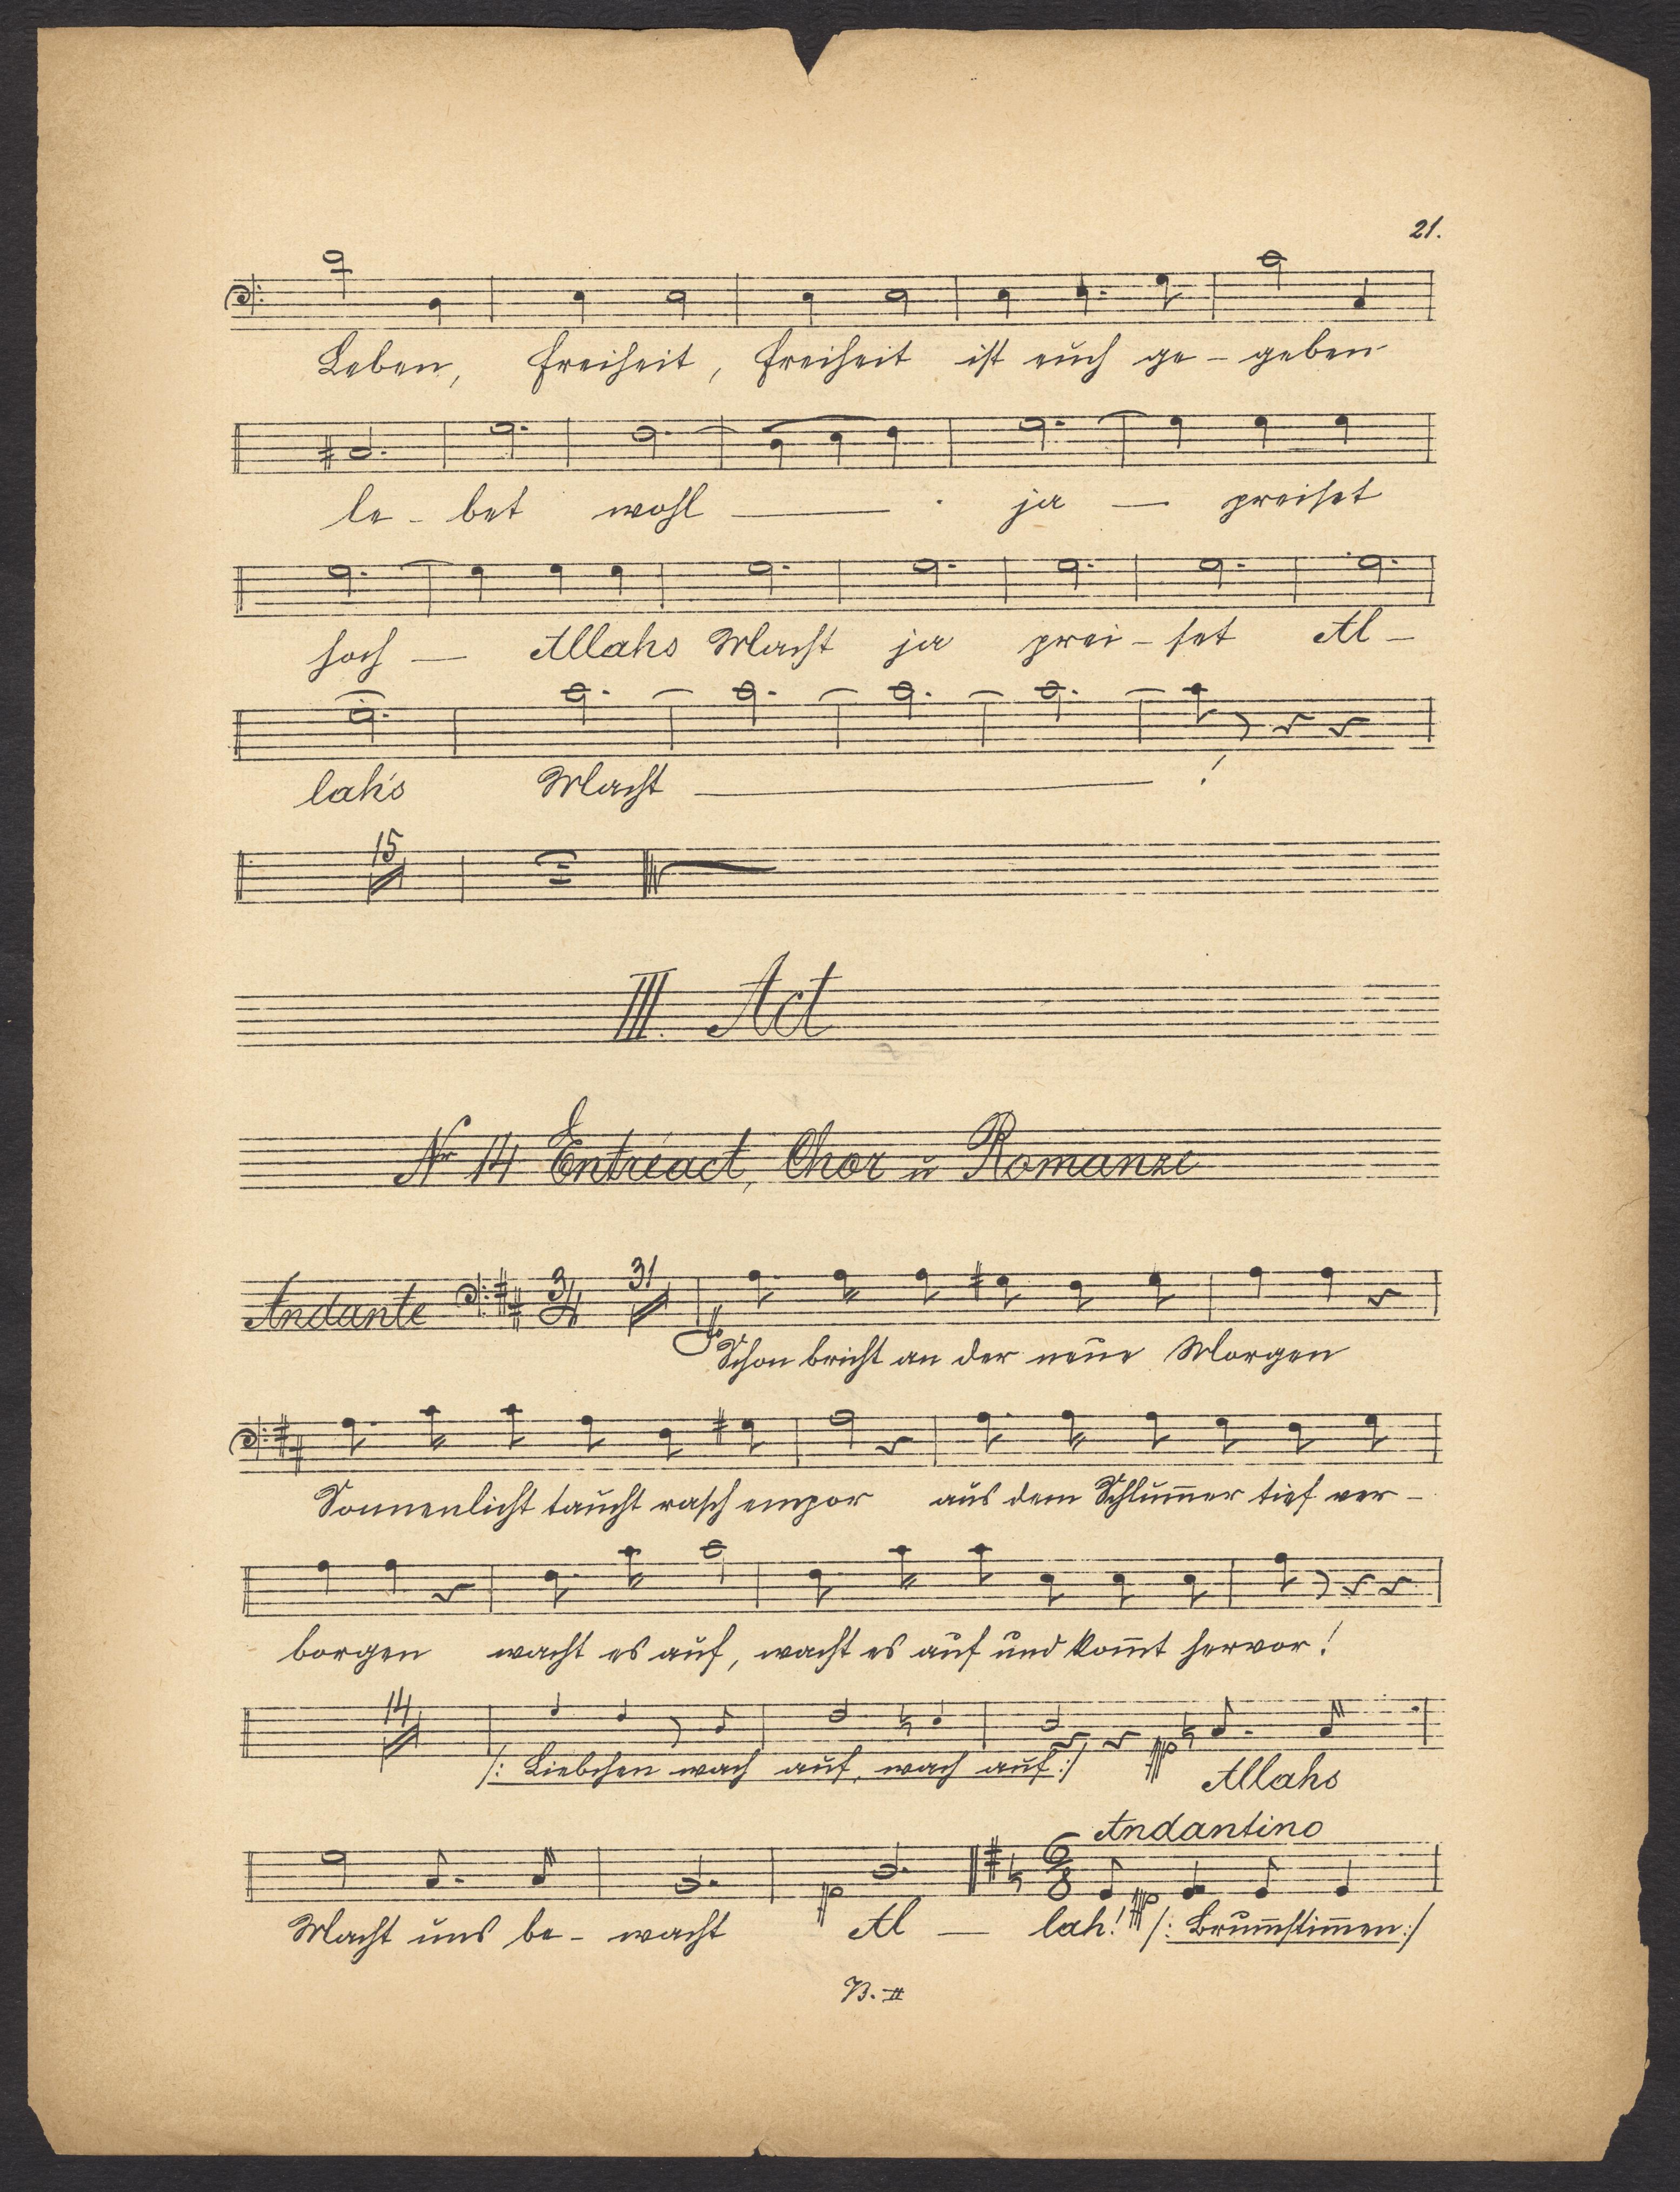 21.
Leben, Freiheit, Freiheit ist euch ge - geben
le - bet wohl — ja — preiset
hoch — Allahs Macht ja prei - set Al -
lah's Macht — !
15
III. Act
Nr 14 Entréact, Chor u Romanze
Andante 3/4 31
Schon bricht an der neue Morgen
Sonnenlicht taucht rasch empor aus dem Schlum̅er tief ver -
borgen wacht es auf, wacht es auf und kom̅t hervor!
14
/: Liebchen wach auf, wach auf :/ ppp Allahs
Andantino
6/8
Macht uns be - wacht p Al — lah! ppp /: Brum̅stim̅en :/
B. II